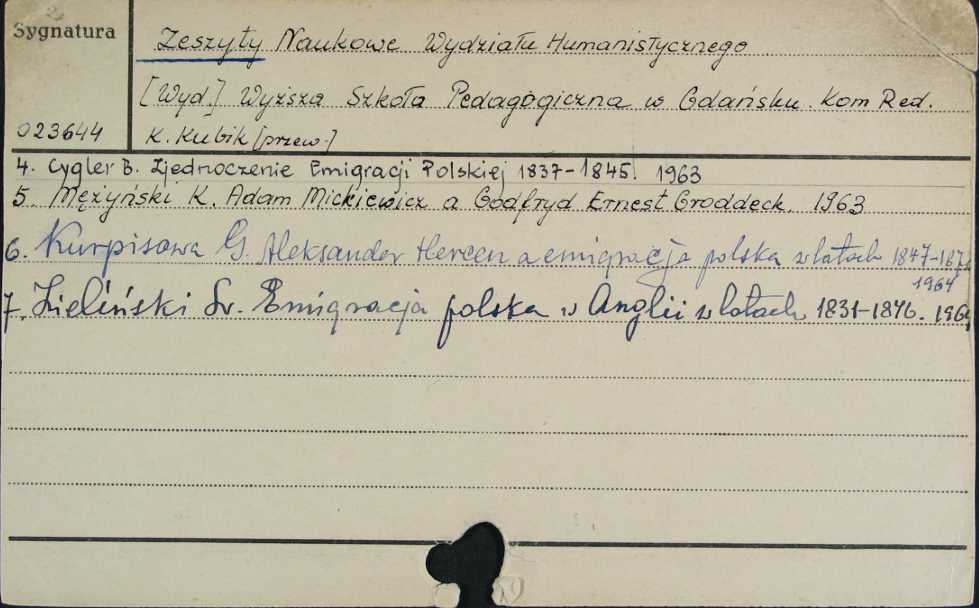 Sygnatura
Zeszyty Naukowe Wydziału Humanistycznego
[Wyd.] Wyższa Szkoła Pedagogiczna w Gdańsku. Kom Red.
023644
K. Kubik [przew.]
4. Cygler B. Zjednoczenie Emigracji Polskiej 1837-1845. 1963
5. Mężyński K. Adam Mickiewicz a Godfryd Ernest Groddeck. 1963
6. Kurpisowa G. Aleksander Hercen a emigracja polska w latach 1847-187
1964
7. Zieliński Sv. Emigracja polska w Anglii w latach 1831-1846. 1964